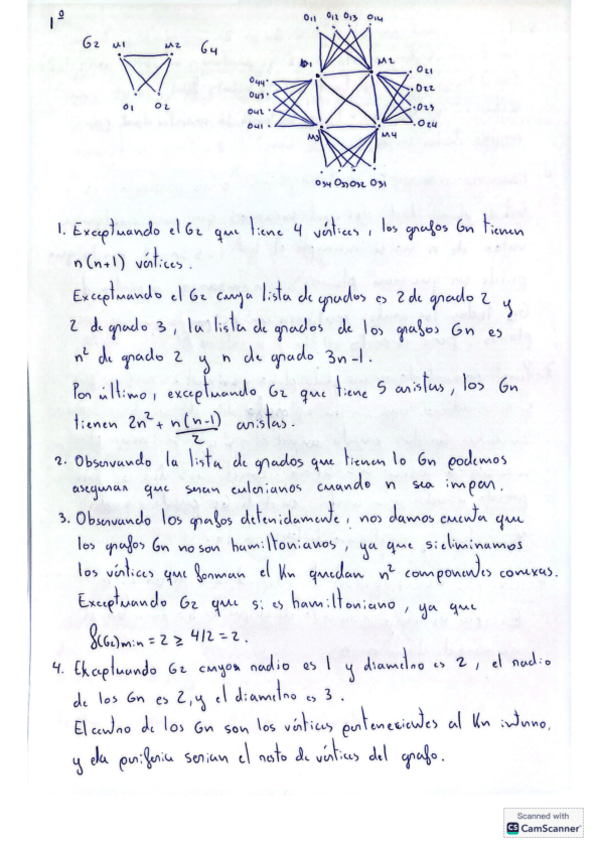 1º
G2 M1 M2 G4
O1 O2
O11 O12 O13 O14
M1 M2
O44 O43 O42 O41
O21 O22 O23 O24
M3 M4
O34 O33 O32 O31
1. Exceptuando el G2 que tiene 4 vértices, los grafos Gn tienen
n(n+1) vértices.
Exceptuando el G2 cuya lista de grados es 2 de grado 2 y
2 de grado 3, la lista de grados de los grafos Gn es
n² de grado 2 y n de grado 3n-1.
Por último, exceptuando G2 que tiene 5 aristas, los Gn
tienen 2n² + n(n-1)/2 aristas.
2. Observando la lista de grados que tienen lo Gn podemos
asegurar que seran eulerianos cuando n sea impar.
3. Observando los grafos detenidamente, nos damos cuenta que
los grafos Gn no son hamiltonianos, ya que si eliminamos
los vértices que forman el Kn quedan n² componentes conexas.
Exceptuando G2 que si es hamiltoniano, ya que
δ(G2)min = 2 ≥ 4/2 = 2.
4. Exceptuando G2 cuyos radio es 1 y diametro es 2, el radio
de los Gn es 2, y el diametro es 3.
El centro de los Gn son los vértices pertenecientes al Kn interno,
y ela periferia serian el resto de vértices del grafo.
Scanned with
CS CamScanner